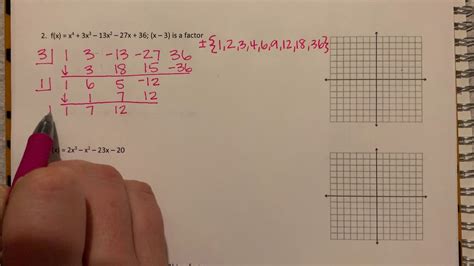 2. f(x) = x⁴ + 3x³ – 13x² – 27x + 36; (x – 3) is a factor
± {1,2,3,4,6,9,12,18,36}
3 | 1 3 -13 -27 36
↓ 3 18 15 -36
1 | 1 6 5 -12
↓ 1 7 12
1 1 7 12
(x) = 2x³ – x² – 23x – 20